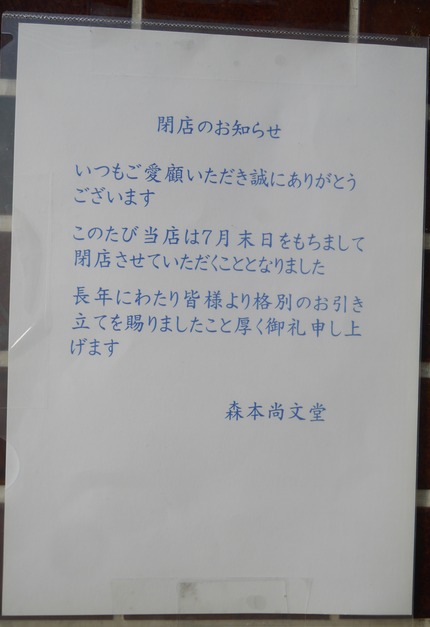 閉店のお知らせ
いつもご愛顧いただき誠にありがとう
ございます
このたび当店は7月末日をもちまして
閉店させていただくこととなりました
長年にわたり皆様より格別のお引き
立てを賜りましたこと厚く御礼申し上
げます
森本尚文堂